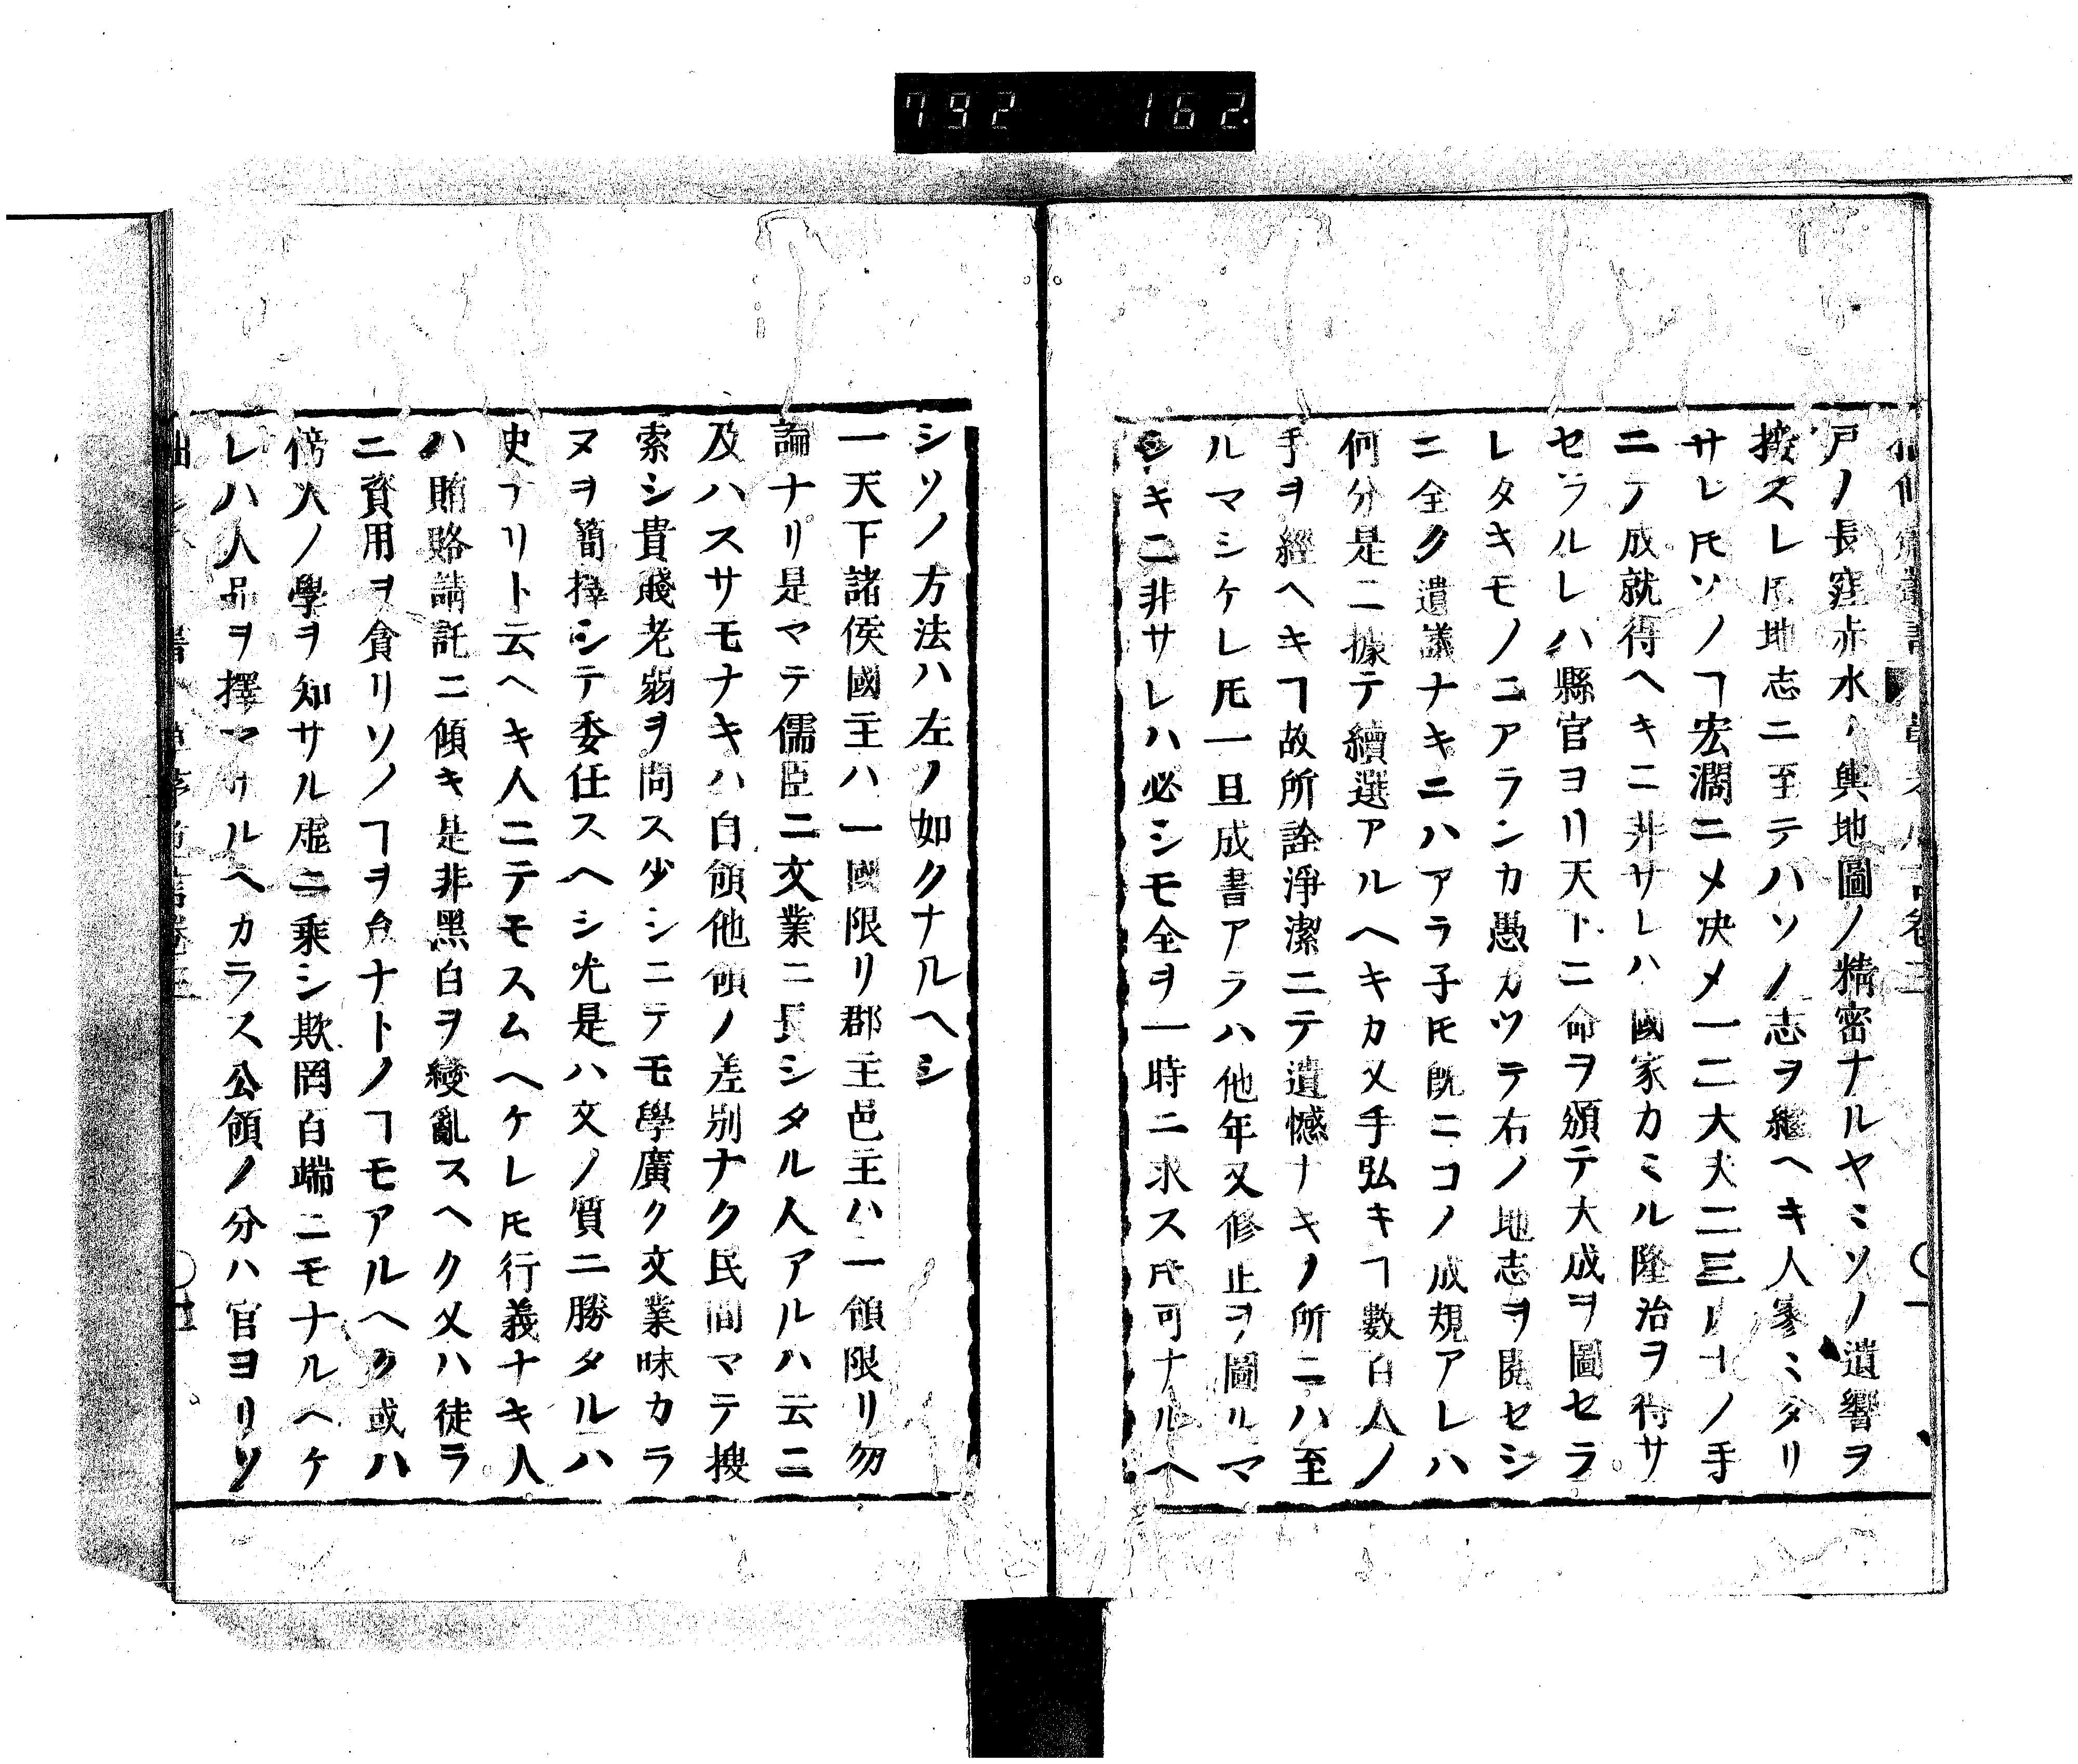 792 162
戸ノ長窪赤水ノ輿地圖ノ精密ナルヤミソノ遺響ヲ
按スレ𪜈地志ニ至テハソノ志ヲ繼ヘキ人寥ミタリ
サレ𪜈ソノヿ宏濶ニメ决メ一二大夫二三ノ手
ニテ成就得ヘキニ非サレハ國家カミル隆治ヲ得サ
セラルレハ縣官ヨリ天下ニ命ヲ頒テ大成ヲ圖セラ
レタキモノニアランカ愚カツテ右ノ地志ヲ閲セシ
ニ全ク遺議ナキニハアラ子𪜈既ニコノ成規アレハ
何分是ニ據テ續選アルヘキカ又手弘キヿ數百人ノ
手ヲ經ヘキヿ故所詮淨潔ニテ遺憾ナキノ所ニハ至
ルマシケレ𪜈一旦成書アラハ他年又修止ヲ圖ルマ
シキニ非サレハ必シモ全ヲ一時ニ求ス𪜈可ナルヘ
シソノ方法ハ左ノ如クナルヘシ
一天下諸侯國主ハ一國限リ郡主邑主ハ一領限リ勿
論ナリ是マテ儒臣ニ文業ニ長シタル人アルハ云ニ
及ハスサモナキハ自領他領ノ差别ナク民間マテ搜
索シ貴賤老弱ヲ問ス少シニテモ學廣ク文業昧カラ
ヌヲ簡擇シテ委任スヘシ尤是ハ文ノ質ニ勝タルハ
史ナリト云ヘキ人ニテモスムヘケレ𪜈行義ナキ人
ハ賄賂請託ニ傾キ是非黑白ヲ變亂スヘク又ハ徒ラ
ニ資用ヲ貪リソノヿヲ怠ナトノヿモアルヘク或ハ
傍人ノ學ヲ知サル虚ニ乘シ欺罔百端ニモナルヘケ
レハ人品ヲ擇マサルヘカラス公領ノ分ハ官ヨリソ